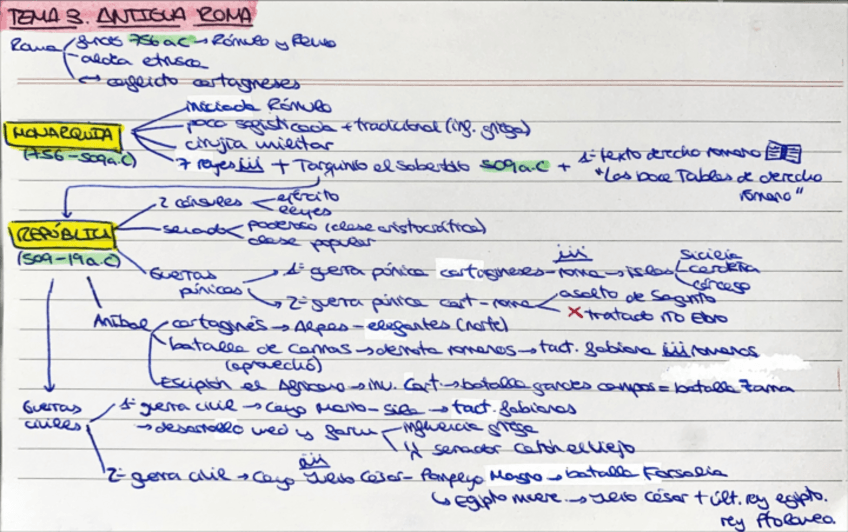 TEMA 3. ANTIGUA ROMA
Roma fundó 756 a.C → Rómulo y Remo
aldea etrusca
↔ conflicto cartagneses
iniciada Rómulo
MONARQUIDA poco sofisticada + tradicional (inf. griega)
(756-509a.C) cirujia militar
7 reyes + Tarquinio el soberbio 509 a.C + 1º texto derecho romano
"Las doce Tables de derecho romano"
2 cónsules ejército
leyes
REPÚBLICA senado poderoso (clase aristocrática)
clase popular
(509-19a.C)
Guerras púnicas 1º gerra púnica cartagineses - roma → islas sicicia
cerdeña
córcega
2º guerra púnica cart - roma asalto de Sagunto
✗ tratado río Ebro
Aníbal cartaginés → Alpes - elefantes (norte)
batalla de Cannas → derrota romanos → tact. fabiana romanos
(aprovechó)
Escipión el Africano → inv. Cart → batalla grandes campos = batalla Zama
Guerras civiles 1º gerra civil → Cayo Mario - Sila → tact. fabianas
→ desarrollo influencia griega
senador Catón el Viejo
2º gerra civil → Cayo Julio César - Pompeyo Magno → batalla Farsalia
↳ Egipto muere → Julio César + últ. rey egipto.
rey Ptolomeo